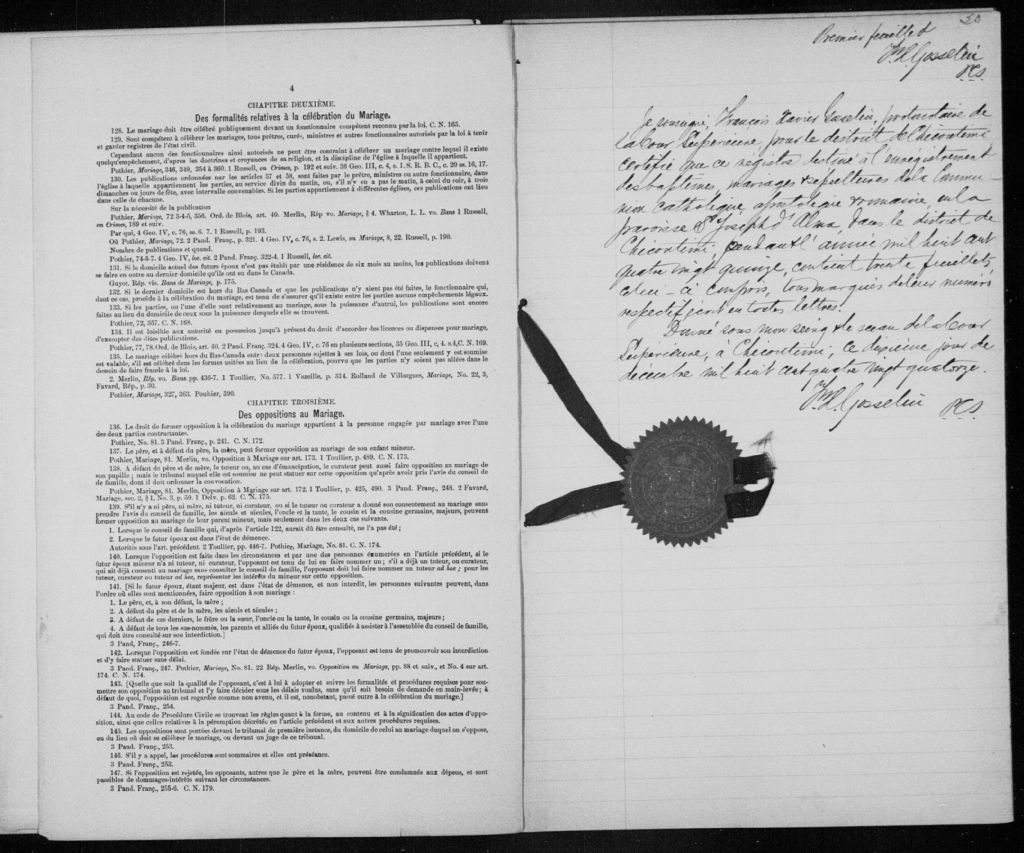 4
CHAPITRE DEUXIÈME.
Des formalités relatives à la célébration du Mariage.
128. Le mariage doit être célébré publiquement devant un fonctionnaire compétent reconnu par la loi. C. N. 165.
129. Sont compétent à célébrer les mariages, tous prêtres, curés, ministres et autres fonctionnaires autorisés par la loi à tenir
et garder registres de l'état civil.
Cependant aucun des fonctionnaires ainsi autorisés ne peut être contraint à célébrer un mariage contre lequel il existe
quelqu'empêchement, d'après les doctrines et croyances de sa religion, et la discipline de l'église à laquelle il appartient.
Pothier, Mariage, 346, 349, 354 & 360. 1 Russell, on Crimes, p. 192 et suiv. 36 Geo. III, c. 4, s. 1. S. R. B. C., c. 20 ss. 16, 17.
130. Les publications ordonnées par les articles 57 et 58, sont faites par le prêtre, ministre ou autre fonctionnaire, dans
l'église à laquelle appartiennent les parties, au service divin du matin, ou, s'il n'y en a pas le matin, à celui du soir, à trois
dimanches ou jours de fête, avec intervalle convenables. Si les parties appartiennent à différentes églises, ces publications ont lieu
dans celle de chacune.
Sur la nécessité de la publication
Pothier, Mariage, 72 3-4-5, 356. Ord. de Blois, art. 40. Merlin, Rép vo. Mariage, § 4. Wharton, L. L. vo. Bans 1 Russell,
on Crimes, 189 et suiv.
Par qui, 4 Geo. IV, c. 76, ss. 6. 7. 1 Russell, p. 193.
Où Pothier, Mariage, 72. 2 Pand. Franç., p. 321. 4 Geo. IV, c. 76, s. 2. Lewis, on Mariage, 8, 22. Russell, p. 190.
Nombre de publications et quand.
Pothier, 74-5-7. 4 Geo IV, loc. cit. 2 Pand. Franç. 322-4. 1 Russell, loc. cit.
131. Si le domicile actuel des futurs époux n'est pas établi par une résidence de six mois au moins, les publications doivent
se faire en outre au dernier domicile qu'ils ont eu dans le Canada.
Guyot. Rép. vis. Bans de Mariage, p. 175.
132. Si le dernier domicile est hors du Bas Canada et que les publications n'y aient pas été faites, le fonctionnaire qui,
dant ce cas, procède à la célébration du mariage, est tenu de s'assurer qu'il existe entre les parties aucuns empêchements légaux.
133. Si les parties, ou l'une d'elle sont relativement au mariage, sous la puissance d'autrui, les publications sont encore
faites au lieu du domicile de ceux sous la puissance desquels elle se trouvent.
Pothier, 72, 357. C. N. 168.
134. Il est loisible aux autorité en possession jusqu'à présent du droit d'accorder des licences ou dispenses pour mariage,
d'exempter des dites publications.
Pothier, 77, 78. Ord. de Blois, art. 40. 2 Pand. Franç. 324. 4 Geo. IV, c. 76 en plusieurs sections, 35 Geo. III, c. 4. s.4, C. N. 169.
135. Le mariage célébré hors du Bas-Canada entre deux personnes sujettes à ses lois, ou dont l'une seulement y est soumise
est valable, s'il est célébré dans les formes usitées au lieu de la célébration, pourvu que les parties n'y soient pas allées dans le
dessein de faire fraude à la loi.
2. Merlin, Rép. vo. Bans. pp. 436-7. 1 Toullier, No. 577. 1 Vazeille, p. 314. Rolland de Villargues, Mariage, No. 22, 3,
Favard, Rép., p. 30.
Pothier, Mariage, 327, 363. Pouhier, 390.
CHAPITRE TROISIÈME.
Des oppositions au Mariage.
136. Le droit de former opposition à la célébration du mariage appartient à la personne engagée par mariage avec l'une
des deux parties contractantes.
Pothier, No. 81. 3 Pand. Franç., p. 241. C. N. 172.
137. Le père, et à défaut du père, la mère, peut former opposition au mariage de son enfant mineur.
Pothier, Mariage, 81. Merlin, vo. Opposition à Mariage sur art. 173. 1 Toullier, p. 489. C. N. 173.
138. A défaut de père et de mère, le tuteur ou, au cas d'émancipation, le curateur peut aussi faire opposition au mariage de
son pupille ; mais le tribunal auquel elle est soumise ne peut statuer sur cette opposition qu'après avoir pris l'avis du conseil de
famille, dont il doit ordonner la convocation.
Pothier, Mariage, 81. Merlin, Opposition à Mariage sur art. 172. 1 Toullier, p. 425, 490. 3 Pand. Franç., 248. 2 Favard,
Mariage, sec. 2, § 1, No. 3, p. 59. 1 Delv. p. 62. C. N. 175.
139. S'il n'y a ni père, ni mère, ni tuteur, ni curateur, ou si le tuteur ou curateur a donné son consentement au mariage sans
prendre l'avis du conseil de famille, les aïeuls et aïeules, l'oncle et la tante, le cousin et la cousine germains, majeurs, peuvent
former opposition au mariage de leur parent mineur, mais seulement dans les deux cas suivants.
1. Lorsque le conseil de famille qui, d'après l'article 122, aurait dû être consulté, ne l'a pas été ;
2. Lorsque le futur époux est dans l'état de démence.
Autorités sous l'art. précédent. 2 Toullier, pp. 446-7. Pothier, Mariage, No. 81. C. N. 174.
140. Lorsque l'opposition est faite dans les circonstances et par une des personnes énumérées en l'article précédent, si le
futur époux mineur n'a ni tuteur, ni curateur, l'opposant est tenu de lui en faire nommer un ; s'il a déjà un tuteur, ou curateur,
qui ait déjà consenti au mariage sans consulter le conseil de famille, l'opposant doit lui faire nommer un tuteur ad hoc ; pour les
tuteur, curateur ou tuteur ad hoc, représenter les intérêts du mineur sur cette opposition.
141. [Si le futur époux, étant majeur, est dans l'état de démence, et non interdit, les personnes suivantes peuvent, dans
l'ordre où elles sont mentionnées, faire opposition à son mariage :
1. Le père, et, à son défaut, la mère ;
2. A défaut du père et de la mère, les aïeuls et aïeules ;
3. A défaut de ces derniers, le frère ou la sœur, l'oncle ou la tante, le cousin ou la cousine germains, majeurs ;
4. A défaut de tous les sus-nommés, les parents et alliés du futur époux, qualifiés à assister à l'assemblée du conseil de famille,
qui doit être consulté sur son interdiction.]
3 Pand, Franç., 246-7.
142. Lorsque l'opposition est fondée sur l'état de démence du futur époux, l'opposant est tenu de promouvoir son interdiction
et d'y faire statuer sans délai.
3 Pand. Franç., 247. Pothier, Mariage, No. 81. 22 Rép. Merlin, vo. Opposition au Mariage, pp. 88 et suiv., et No. 4 sur art.
174. C. N. 174.
143. [Quelle que soit la qualité de l'opposant, c'est à lui à adopter et suivre les formalités et procédures requises pour sou-
mettre son opposition au tribunal et l'y faire décider sous les délais voulus, sans qu'il soit besoin de demande en main-levée ; à
défaut de quoi, l'opposition est regardée comme non avenu, et il est, nonobstant, passé outre à la célébration du mariage.]
3 Pand. Franç., 254.
144. Au code de Procédure Civile se trouvent les règles quant à la forme, au contenu et à la signification des actes d'oppo-
sition, ainsi que celles relatives à la péremption décrétée en l'article précédent et aux autres procédures requises.
145. Les oppositions sont portées devant le tribunal de première instance, du domicile de celui au mariage duquel on s'oppose,
ou du lieu où doit se célébrer le mariage, ou devant un juge de ce tribunal.
3 Pand. Franç., 253.
146. S'il y a appel, les procédures sont sommaires et elles ont préséance.
3 Pand. Franç., 253.
147. Si l'opposition est rejetée, les opposants, autres que le père et la mère, peuvent être condamnés aux dépens, et sont
passibles de dommages-intérêts suivant les circonstances.
3 Pand. Franç., 255-6. C. N. 179.
30
Premier feuillet
Gosselin
PCS
Je soussigné, François Xavier Gosselin, protonotaire de
la Cour Supérieure, pour le district de Chicoutimi
certifie que ce registre destiné à l'enregistrement
des baptêmes, mariages & sépultures de la Commu-
nion catholique apostolique romaine, en la
paroisse St Joseph d'Alma, dans le district de
Chicoutimi, pendant l'année mil huit cent
quatre vingt quinze, contient trente feuillets,
celui-ci compris, tous marqués de leur numéro
respectif écrit en toutes lettres.
Donné sous mon seing & le sceau de la Cour
Supérieure, à Chicoutimi, ce dixième jour de
décembre mil huit cent quatre vingt quatorze.
Gosselin PCS